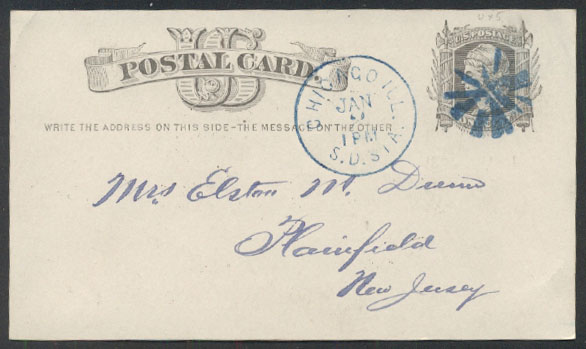 US
POSTAL CARD
U.S. POSTAGE
WRITE THE ADDRESS ON THIS SIDE-THE MESSAGE ON THE OTHER
CHICAGO ILL.
JAN
1 PM
S.D. STA.
Mrs Elston M. Dunn
Plainfield
New Jersey